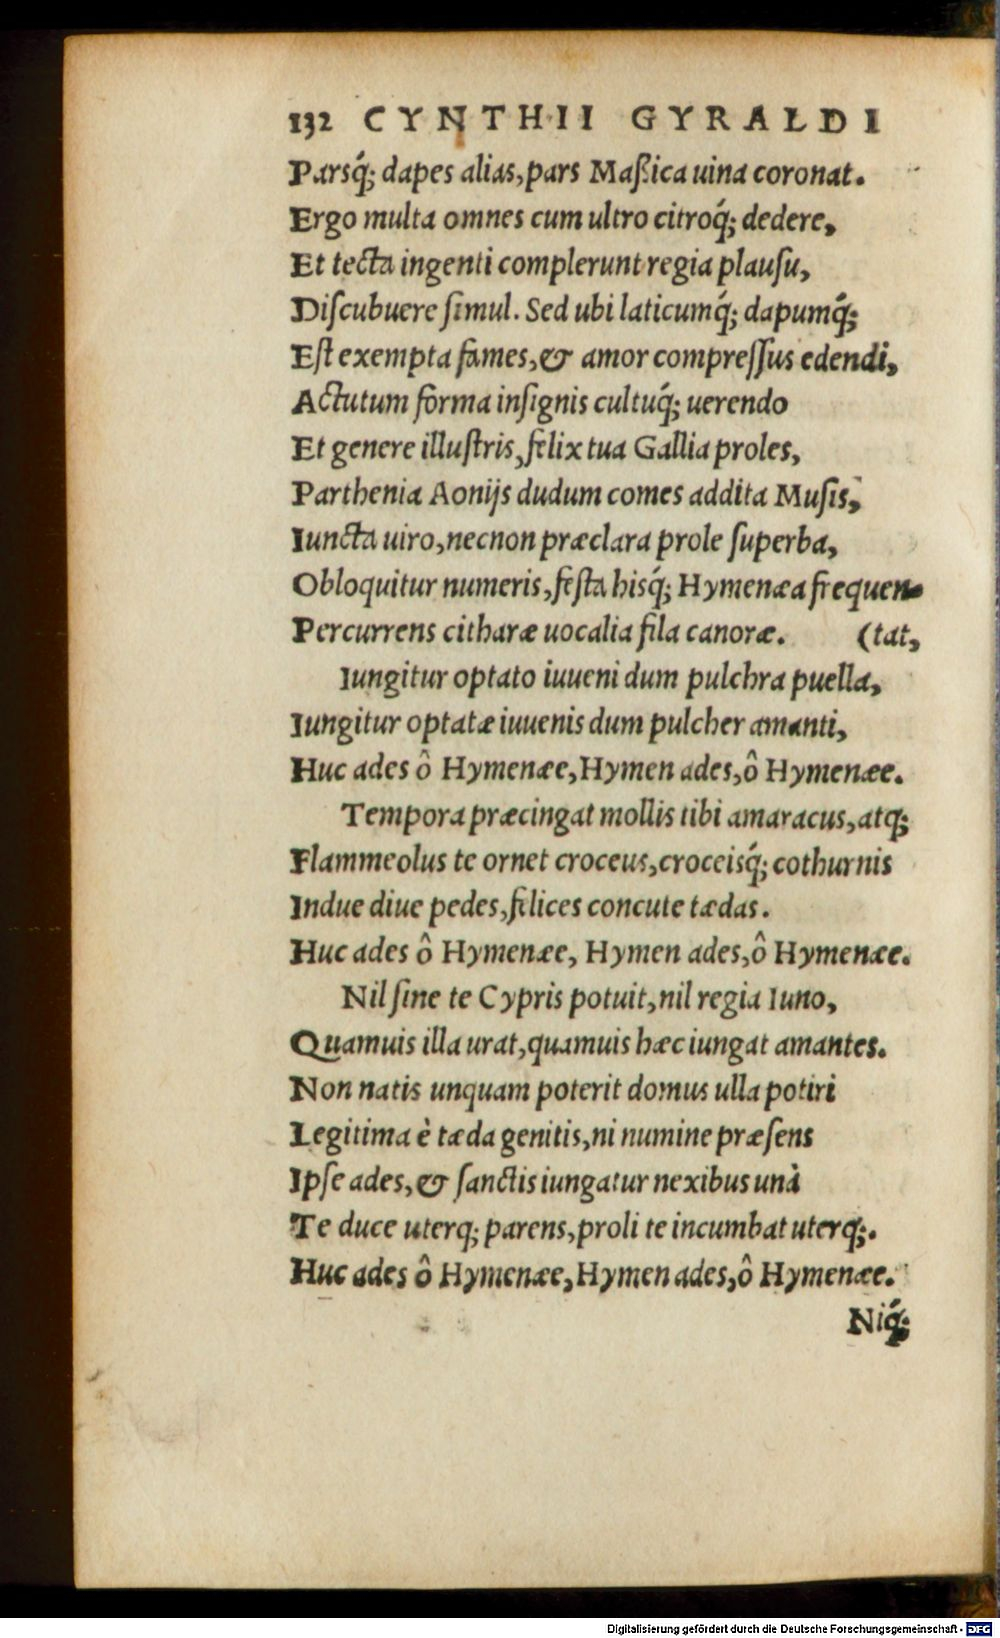 132 CYNTHII GYRALDI
Parsq́; dapes alias, pars Maßica uina coronat.
Ergo multa omnes cum ultro citroq́; dedere,
Et tecta ingenti complerunt regia plauſu,
Diſcubuere ſimul. Sed ubi laticumq́; dapumq́;
Eſt exempta fames, & amor compreſſus edendi,
Actutum forma inſignis cultuq́; uerendo
Et genere illuſtris, felix tua Gallia proles,
Parthenia Aonijs dudum comes addita Muſis,
Iuncta uiro, necnon præclara prole ſuperba,
Obloquitur numeris, feſta hisq́; Hymenæa frequen-
Percurrens citharæ uocalia fila canoræ. (tat,
Iungitur optato iuueni dum pulchra puella,
Iungitur optatæ iuuenis dum pulcher amanti,
Huc ades ô Hymenæe, Hymen ades, ô Hymenæe.
Tempora præcingat mollis tibi amaracus, atq;
Flammeolus te ornet croceus, croceisq́; cothurnis
Indue diue pedes, felices concute tædas.
Huc ades ô Hymenæe, Hymen ades, ô Hymenæe.
Nil ſine te Cypris potuit, nil regia Iuno,
Quamuis illa urat, quamuis hæc iungat amantes.
Non natis unquam poterit domus ulla potiri
Legitima è tæda genitis, ni numine præſens
Ipſe ades, & ſanctis iungatur nexibus unà
Te duce uterq; parens, proli te incumbat uterq;.
Huc ades ô Hymenæe, Hymen ades, ô Hymenæe.
Niq́;
Digitalisierung gefördert durch die Deutsche Forschungsgemeinschaft - DFG